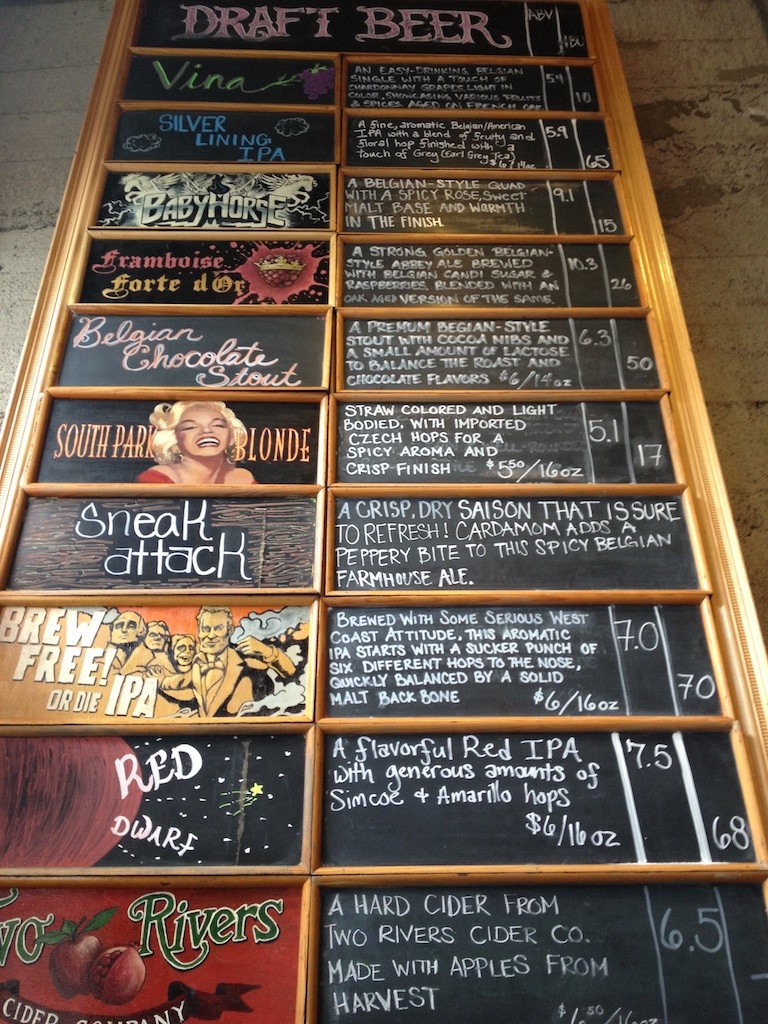 DRAFT BEER
ABV
IBU
Vina
AN EASY-DRINKING BELGIAN
SINGLE WITH A TOUCH OF
CHARDONNAY GRAPES, LIGHT IN
COLOR, SHOWCASING VARIOUS FRUITS
& SPICES AGED ON FRENCH OAK
5.4
10
SILVER
LINING
IPA
A fine, aromatic Belgian/American
IPA with a blend of fruity and
floral hop finished with a
touch of Grey (Earl Grey Tea)
$6/14oz
5.9
65
BABYHORSE
A BELGIAN-STYLE QUAD
WITH A SPICY ROSE, SWEET
MALT BASE AND WARMTH
IN THE FINISH.
9.1
15
Framboise
Forte d'Or
A STRONG GOLDEN BELGIAN-
STYLE ABBEY ALE BREWED
WITH BELGIAN CANDI SUGAR &
RASPBERRIES, BLENDED WITH AN
OAK AGED VERSION OF THE SAME.
10.3
26
Belgian
Chocolate
Stout
A PREMIUM BEGIAN-STYLE
STOUT WITH COCOA NIBS AND
A SMALL AMOUNT OF LACTOSE
TO BALANCE THE ROAST AND
CHOCOLATE FLAVORS $6/14oz
6.3
50
SOUTH PARK BLONDE
STRAW COLORED AND LIGHT
BODIED, WITH IMPORTED
CZECH HOPS FOR A
SPICY AROMA AND
CRISP FINISH $5.50/16oz
5.1
17
Sneak
attack
A CRISP, DRY SAISON THAT IS SURE
TO REFRESH! CARDAMOM ADDS A
PEPPERY BITE TO THIS SPICY BELGIAN
FARMHOUSE ALE.
BREW
FREE!
OR DIE IPA
BREWED WITH SOME SERIOUS WEST
COAST ATTITUDE, THIS AROMATIC
IPA STARTS WITH A SUCKER PUNCH OF
SIX DIFFERENT HOPS TO THE NOSE,
QUICKLY BALANCED BY A SOLID
MALT BACK BONE $6/16oz
7.0
70
RED
DWARF
A flavorful Red IPA
with generous amounts of
Simcoe & Amarillo hops
$6/16oz
7.5
68
Two Rivers
CIDER COMPANY
A HARD CIDER FROM
TWO RIVERS CIDER CO.
MADE WITH APPLES FROM
HARVEST
6.5